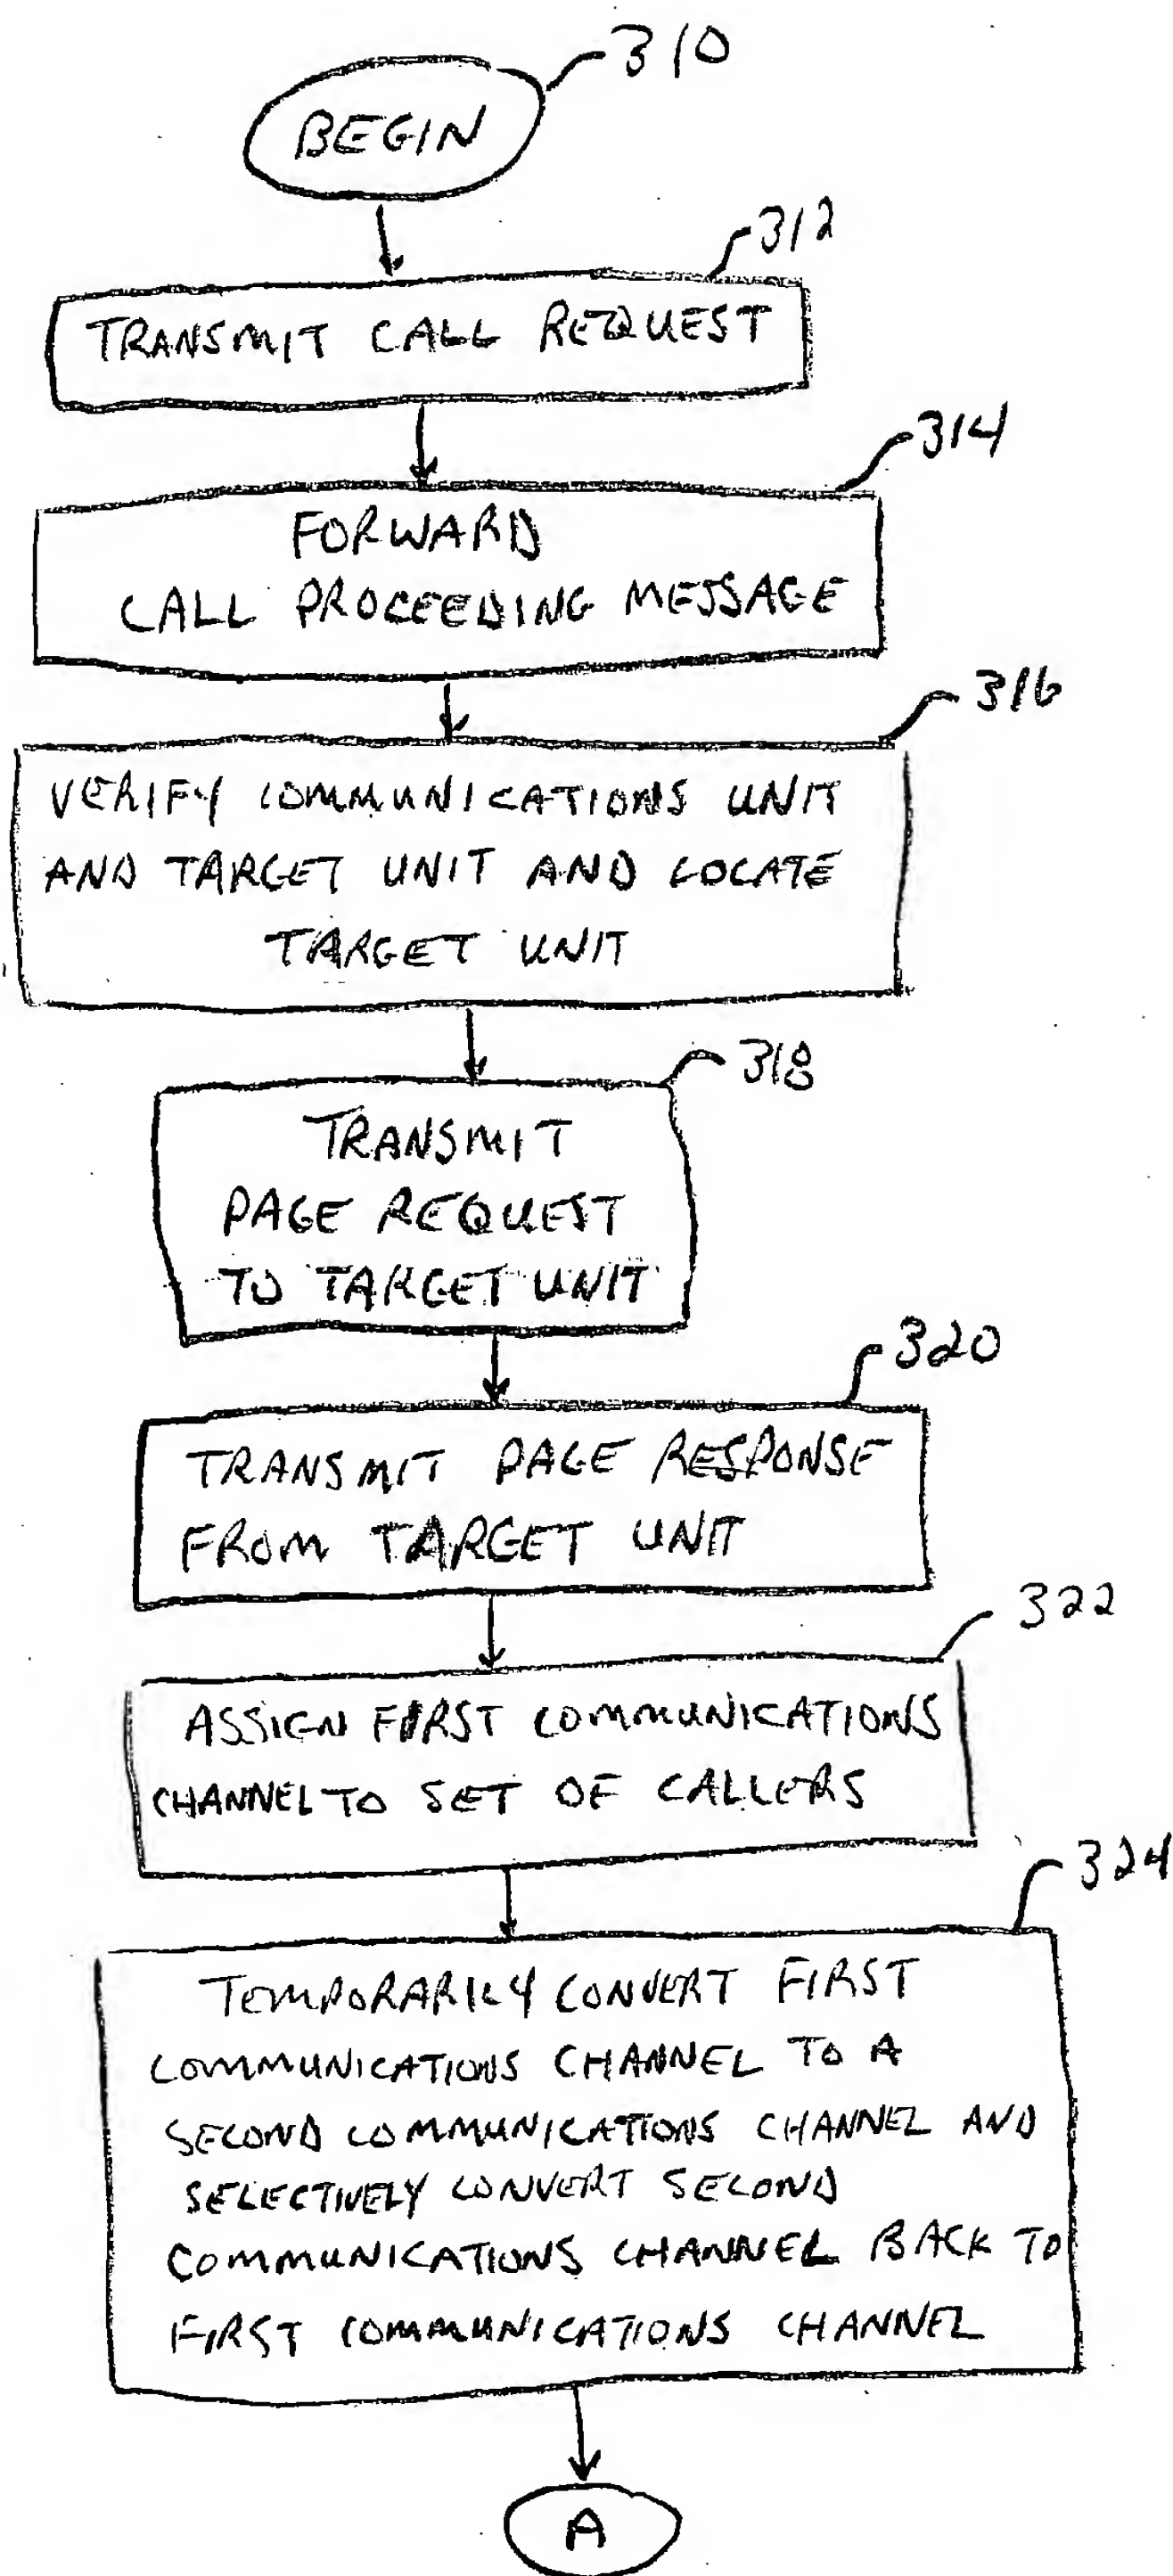 310
BEGIN
312
TRANSMIT CALL REQUEST
314
FORWARD
CALL PROCEEDING MESSAGE
316
VERIFY COMMUNICATIONS UNIT
AND TARGET UNIT AND LOCATE
TARGET UNIT
318
TRANSMIT
PAGE REQUEST
TO TARGET UNIT
320
TRANSMIT PAGE RESPONSE
FROM TARGET UNIT
322
ASSIGN FIRST COMMUNICATIONS
CHANNEL TO SET OF CALLERS
324
TEMPORARILY CONVERT FIRST
COMMUNICATIONS CHANNEL TO A
SECOND COMMUNICATIONS CHANNEL AND
SELECTIVELY CONVERT SECOND
COMMUNICATIONS CHANNEL BACK TO
FIRST COMMUNICATIONS CHANNEL
A